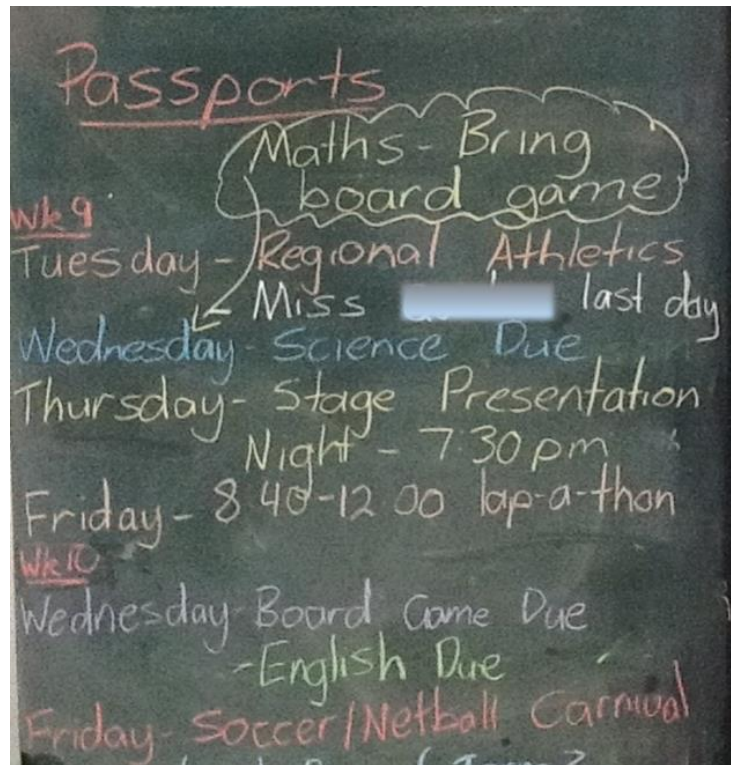 Passports
Maths - Bring
board game
Wk 9
Tuesday - Regional Athletics
- Miss last day
Wednesday - Science Due
Thursday - Stage Presentation
Night - 7:30pm
Friday - 8 40-12 00 lap-a-thon
Wk 10
Wednesday - Board Game Due
- English Due
Friday - Soccer/Netball Carnival